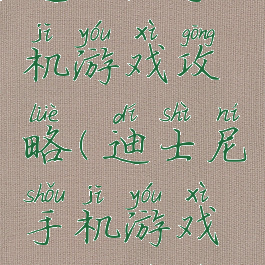 jī yóu xì gōng
机游戏攻
lüè dí shì ní
略(迪士尼
shǒu jī yóu xì
手机游戏